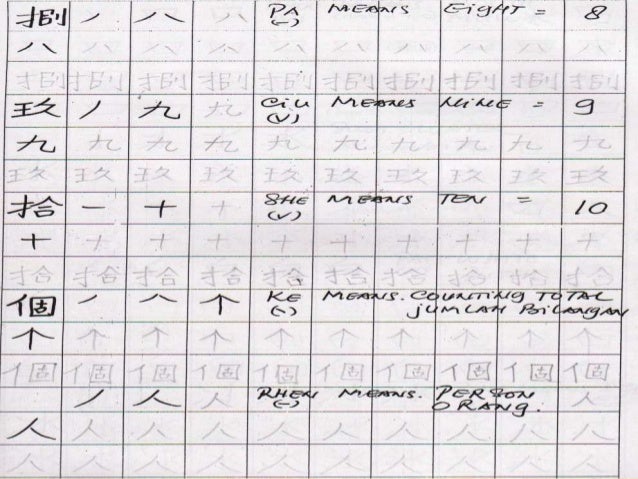 捌 ノ 八 八 PA MEANS EigHT = 8
(-)
八 八 八 八 八 八 八 八 八 八
捌 捌 捌 捌 捌 捌 捌 捌 捌 捌
玖 ノ 九 九 CiU MEANS NiNE = 9
(v)
九 九 九 九 九 九 九 九 九 九
玖 玖 玖 玖 玖 玖 玖 玖 玖 玖
拾 一 十 十 SHE MEANS TEN = 10
(v)
十 十 十 十 十 十 十 十 十 十
拾 拾 拾 拾 拾 拾 拾 拾 拾 拾
個 ノ 八 个 KE MEANS. COUNTiNG TOTAL
(\) jUMLAH BiLANGAN
个 个 个 个 个 个 个 个 个 个
個 個 個 個 個 個 個 個 個 個
ノ 人 人 RHEN MEANS. PERSON 人
(-) ORANG.
人 人 人 人 人 人 人 人 人 人
人 人 人 人 人 人 人 人 人 人